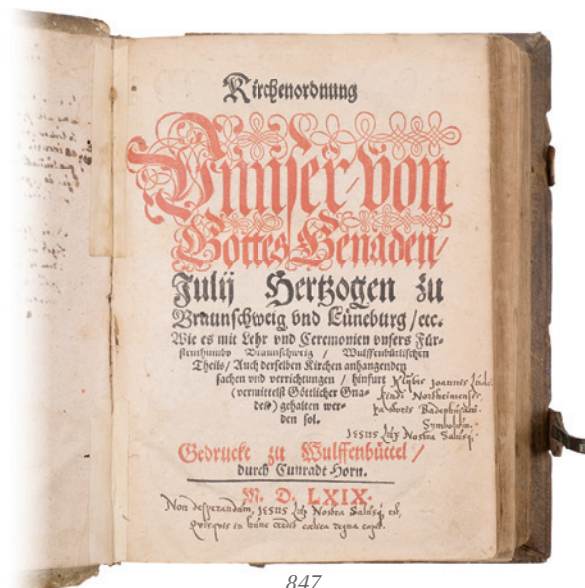 Kirchenordnung
Vnnser/ von
Gottes Genaden/
Julij Hertzogen zu
Braunschweig vnd Lüneburg / etc.
Wie es mit Lehr vnd Ceremonien vnsers Für-
stenthumbs Braunschweig / Wulffenbütlischen
Theils / Auch derselben Kirchen anhangenden
sachen vnd verrichtungen / hinfurt
(vermittelst Göttlicher Gna-
den) gehalten wer-
den sol.
Joannis
Northeimensis
Symbolum
JESUS Lux Nostra Salusq.
Gedruckt zu Wulffenbüttel /
durch Cunradt Horn.
M. D. LXIX.
Non desperandum, JESUS Lux Nostra Salusq. est,
Quisquis in hunc credit cælica regna capit.
847